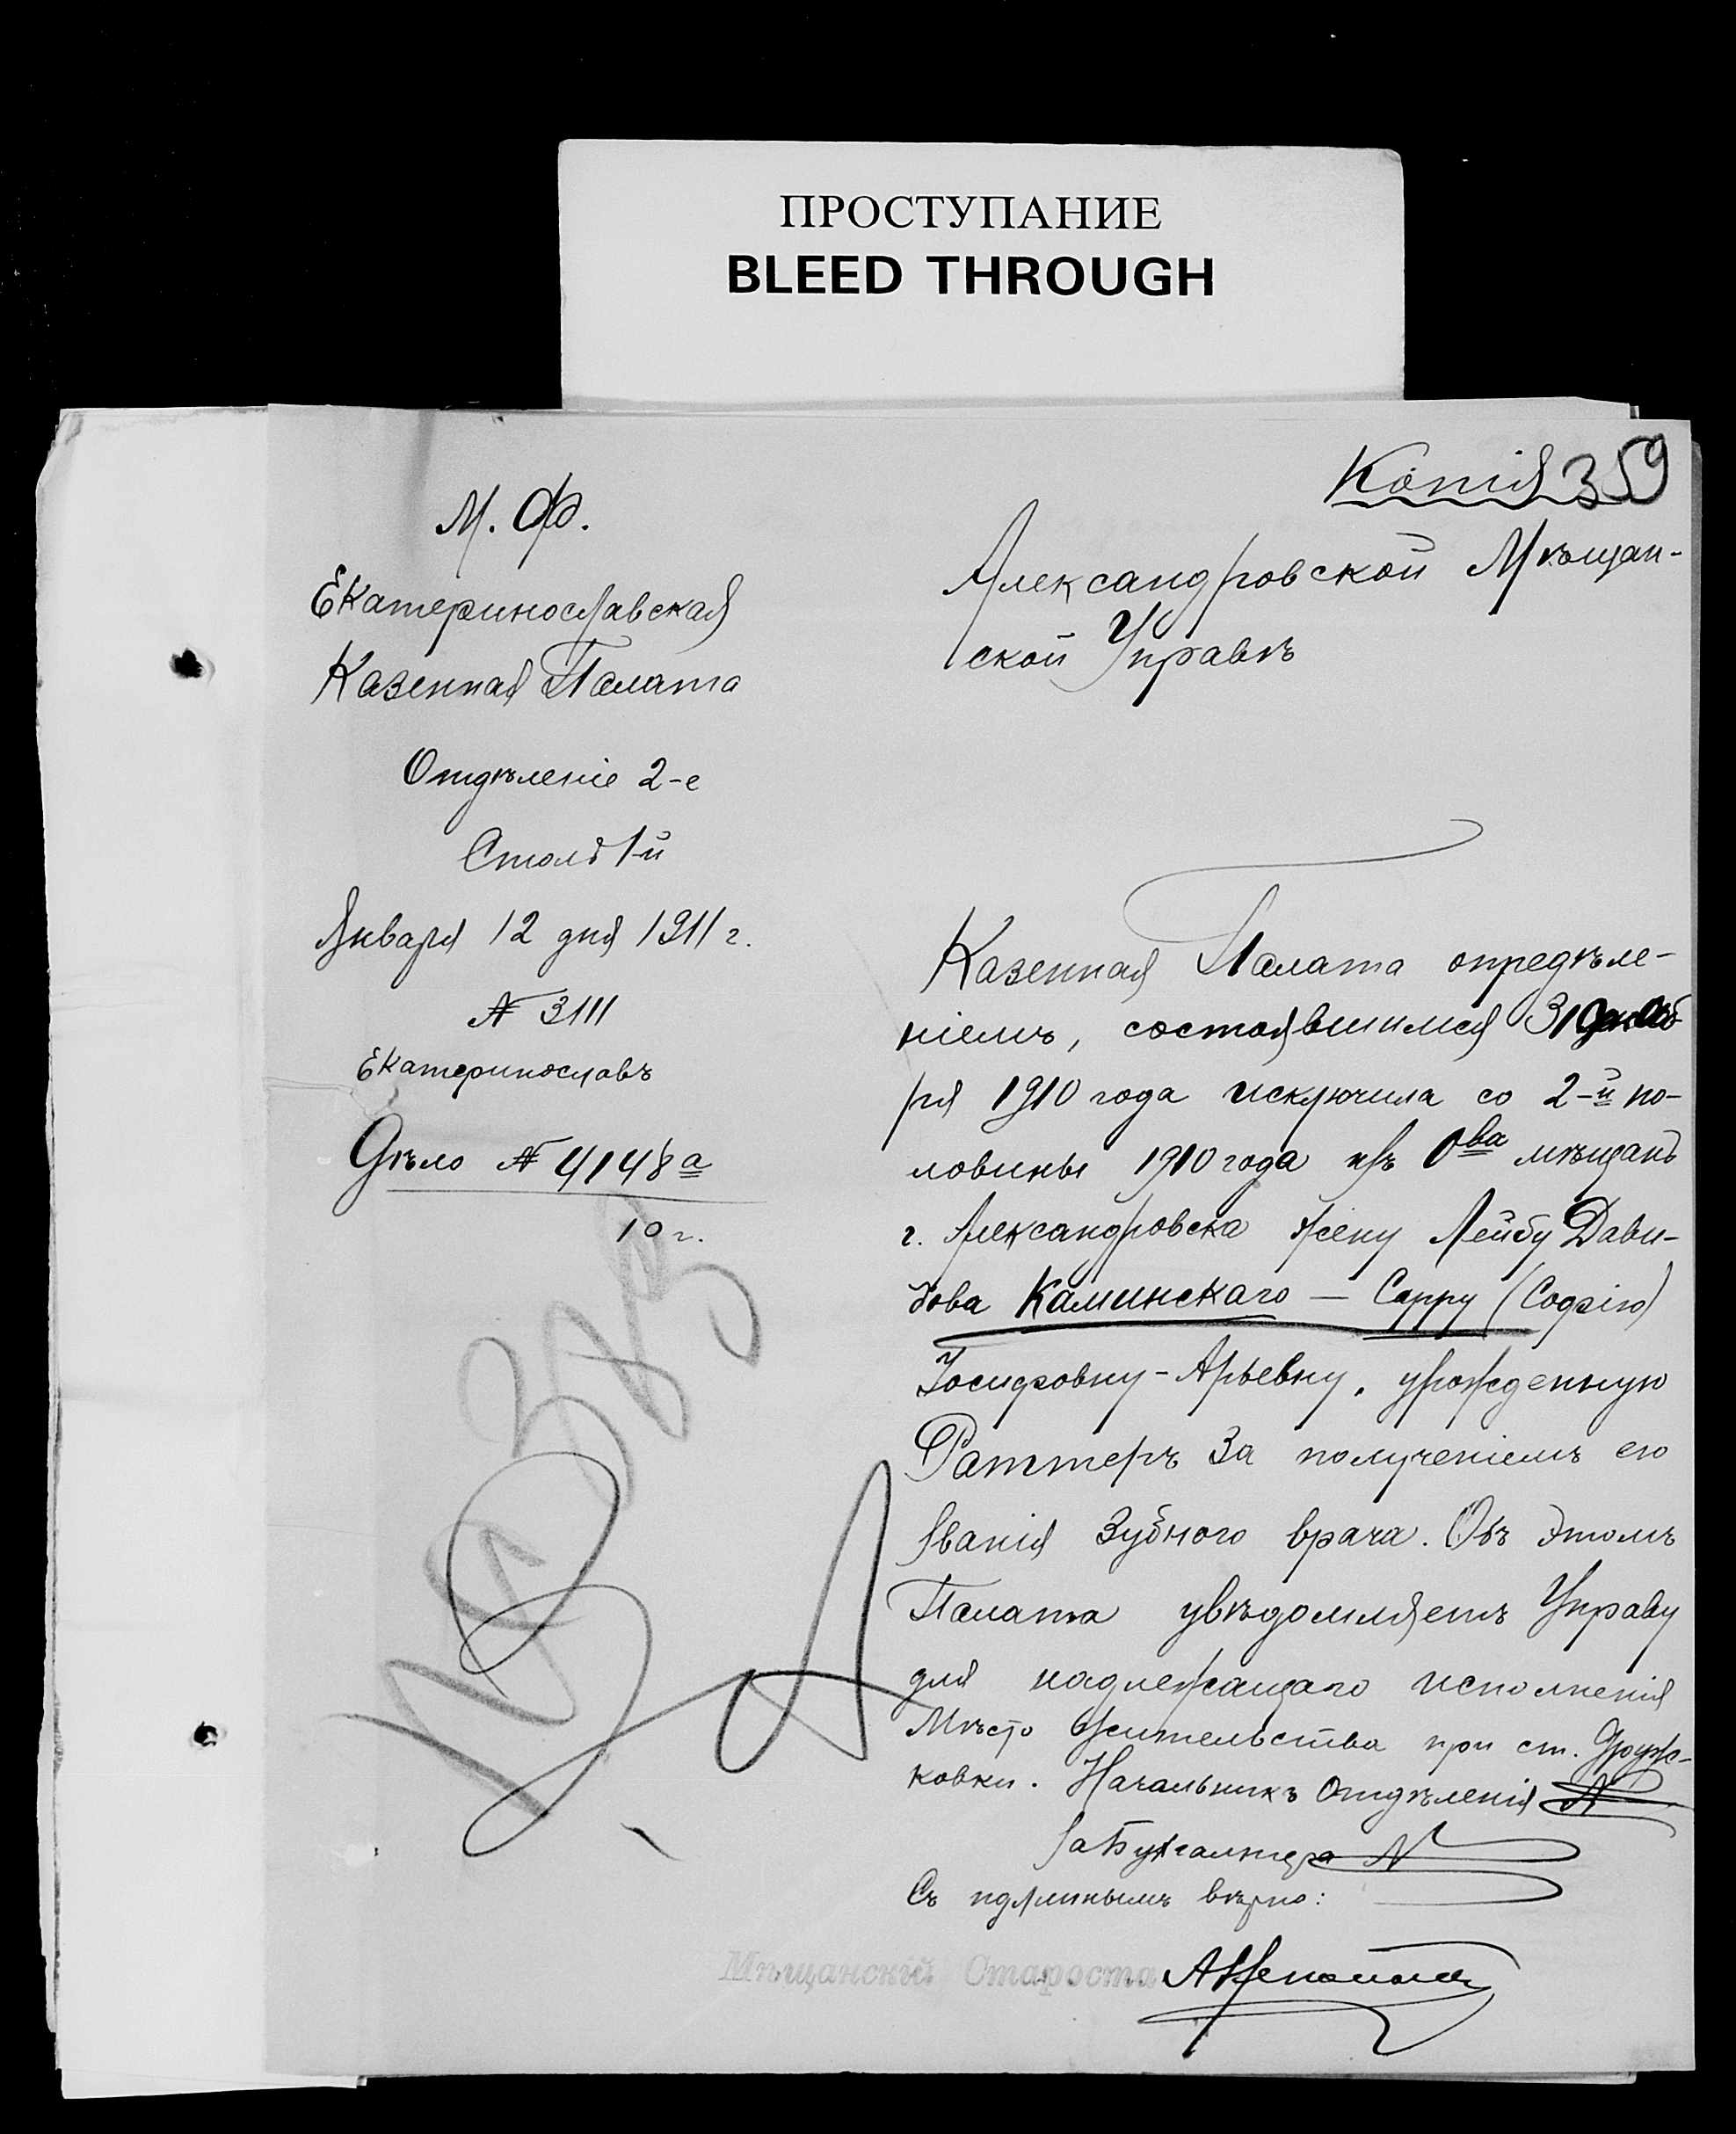 ПРОСТУПАНИЕ
BLEED THROUGH
Копія 359
М. Ф.
Екатеринославская
Казенная Палата
Отдѣленіе 2-е
Столъ 1-й
Января 12 дня 1911 г.
№ 3111
Екатеринославъ
Дѣло № 4148 а
10 г.
Александровской Мѣщан-
ской Управѣ
Казенная Палата опредѣле-
ніемъ, состоявшимся 31 декаб
ря 1910 года исключила со 2-й по-
ловины 1910 года изъ О-ва мѣщанъ
г. Александровска жену Лейбу Дави-
дова Каминскаго — Сарру (Софію)
Іосифовну-Арьевну, урожденную
Раттеръ за полученіемъ ею
званія зубного врача. Объ этомъ
Палата увѣдомляетъ Управу
для надлежащаго исполненія
Мѣсто жительства при ст. Друж-
ковки. Начальникъ Отдѣленія
За Бухгалтера
Съ подлиннымъ вѣрно:
Мѣщанскій Староста